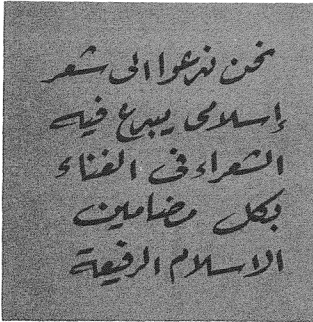 نحن ندعوا الى شعر
إسلامى يبدع فيه
الشعراء فى الغناء
بكل مضامين
الاسلام الرفيعة